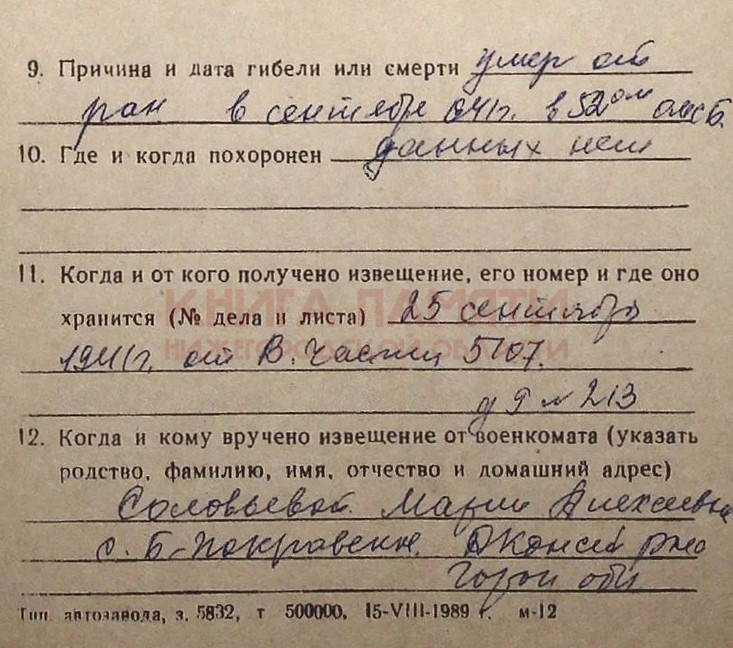 9. Причина и дата гибели или смерти умер от
ран в сентябре 041г. в 52ом омсб.
10. Где и когда похоронен данных нет
11. Когда и от кого получено извещение, его номер и где оно
КНИГА ПАМЯТИ
хранится (№ дела и листа) 25 сентября
НИЖЕГОРОДСКОЙ ОБЛАСТИ
1941г. от В. Части 5107.
д 9 л 213
12. Когда и кому вручено извещение от военкомата (указать
родство, фамилию, имя, отчество и домашний адрес)
Соловьевой Марии Алексеевне
с. Б-Покровское.
обл
Тип. автозавода, з. 5832, т 500000, 15-VIII-1989 г. м-12